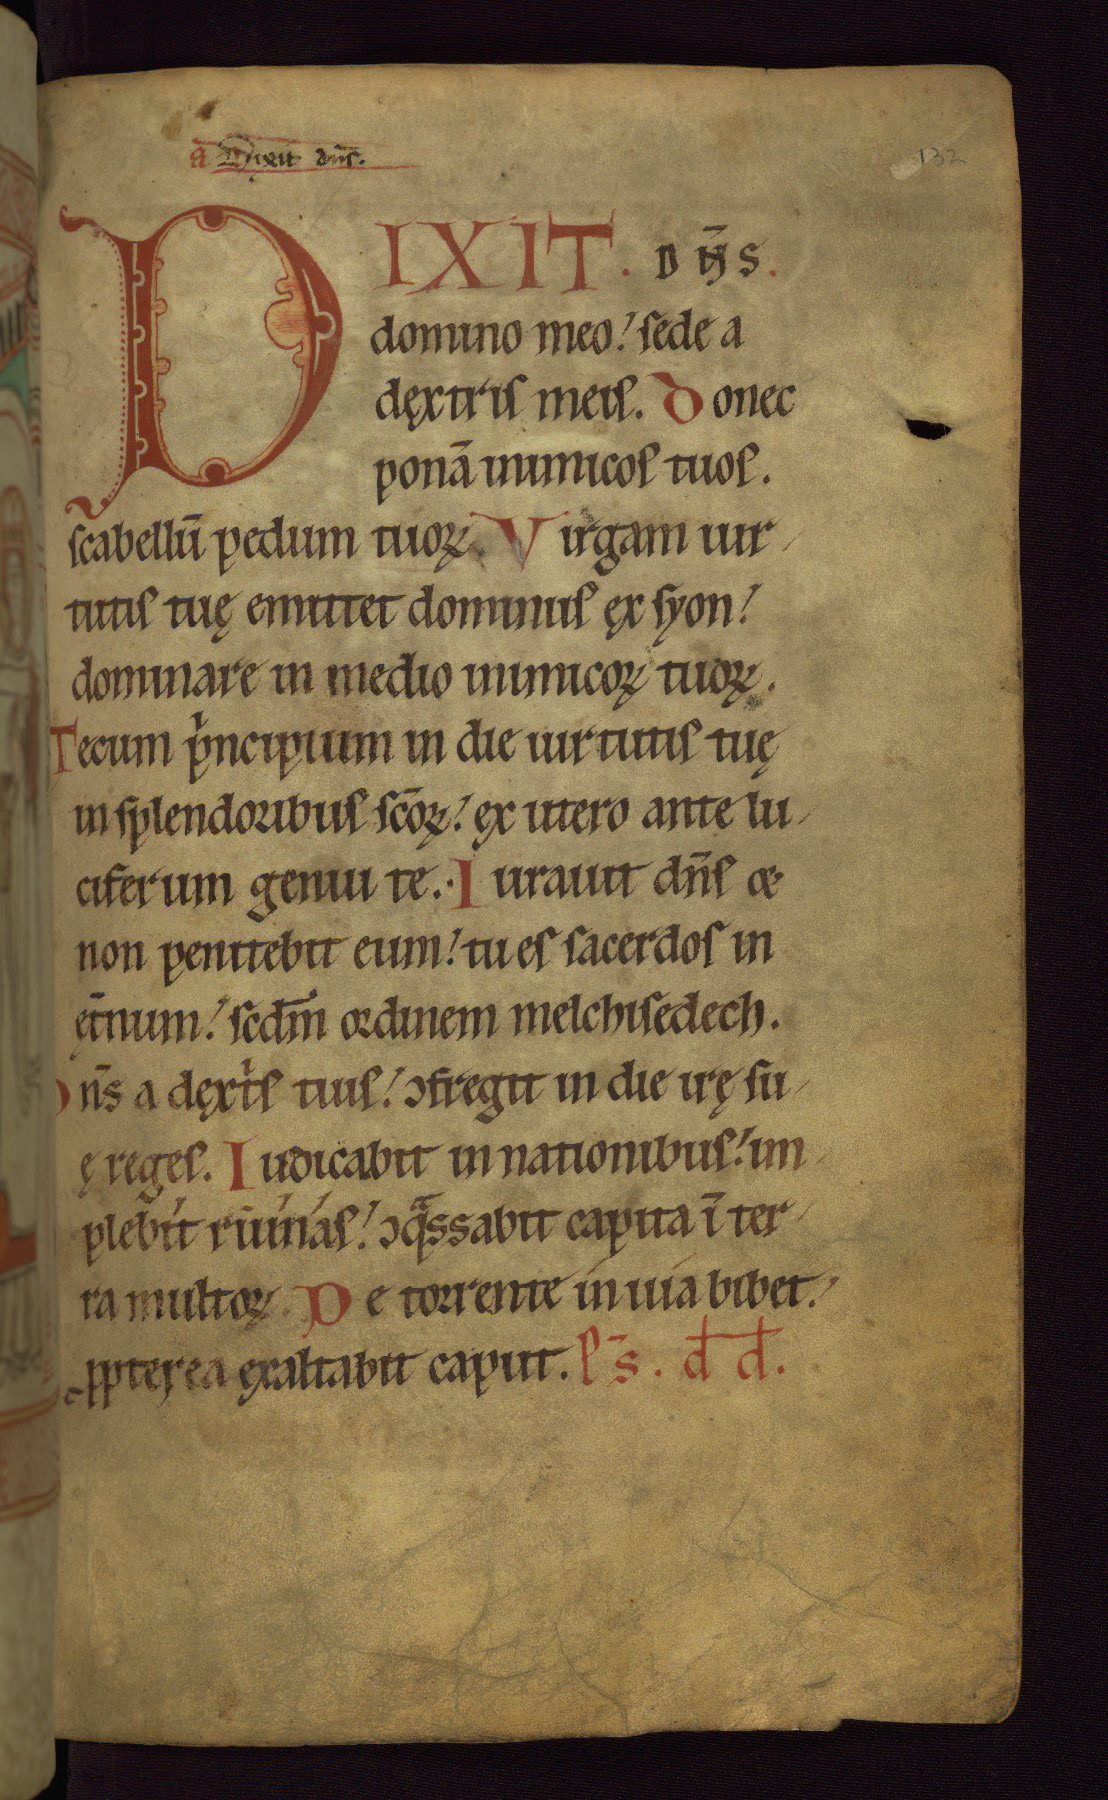 a Dixit dn̄s.
132
DIXIT. DN̄S.
domino meo! sede a
dęxtris meis. Donec
ponā inimicos tuos.
scabellū pedum tuoꝝ. Virgam uir
tutis tuę emittet dominus ęx syon!
dominare in medio inimicoꝝ tuoꝝ.
Tecum pͥncipium in die uirtutis tuę
in splendoribus sc̄oꝝ! ęx utero ante lu
ciferum genui te. Iurauit dn̄s &
non penitebit eum! tu es sacerdos in
ęt̄num! scdm̄ ordinem melchisedech.
Dn̄s a dęxtͥs tuis! ↄfregit in die irę su
ę reges. Iudicabit in nationibus! im
plebit ruinas! ↄqͣssabit capita ī ter
ra multoꝝ. De torrente in uia bibet!
ꝓpterea exaltabit caput. ps̄. dd.